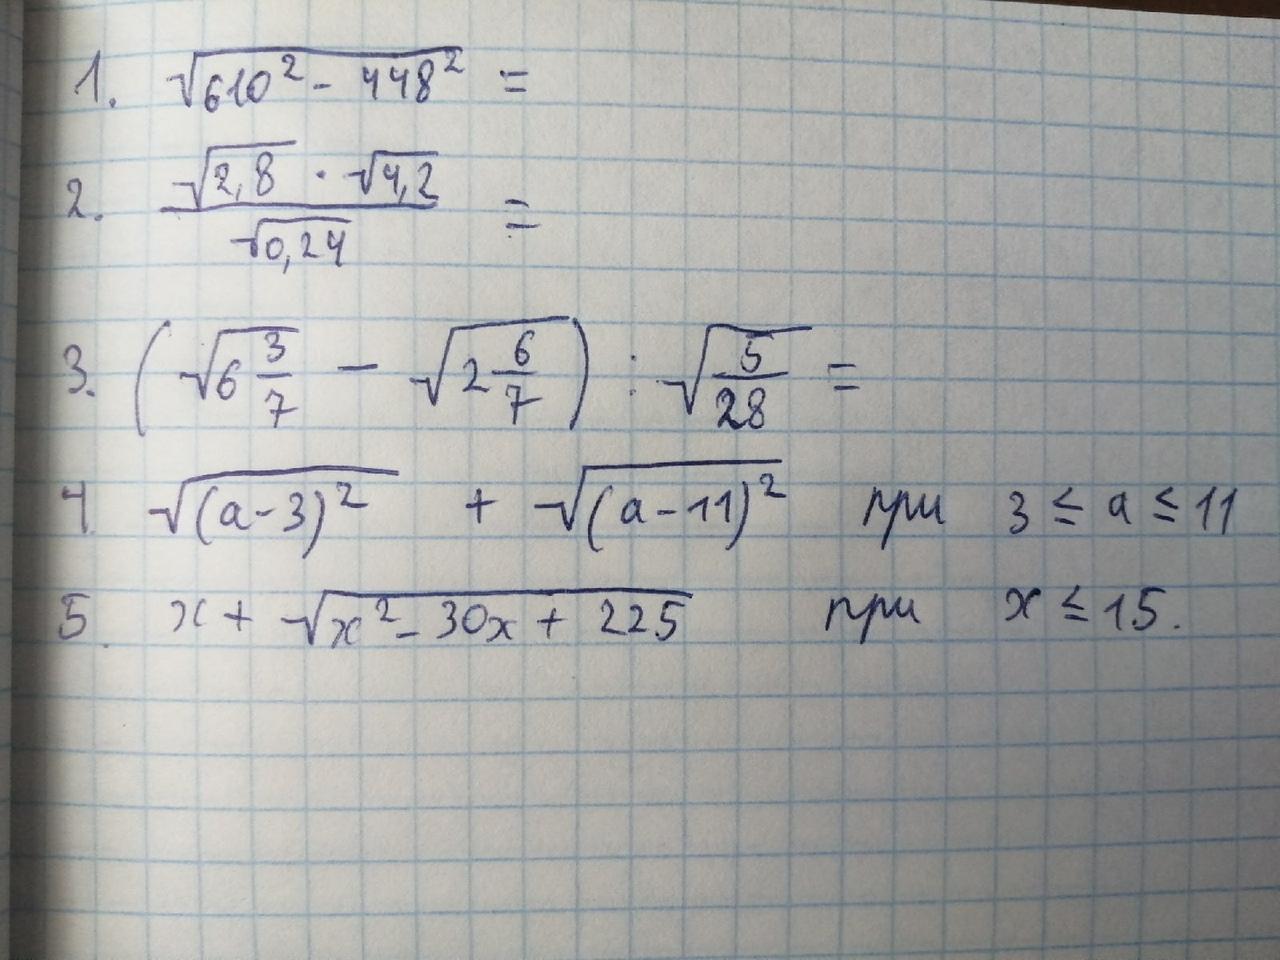 1. √(610² - 448²) =
2. (√2,8 · √4,2) / √0,24 =
3. (√(6 3/7) - √(2 6/7)) : √(5/28) =
4 √((a-3)²) + √((a-11)²) при 3 ≤ a ≤ 11
5. x + √(x² - 30x + 225) при x ≤ 15.